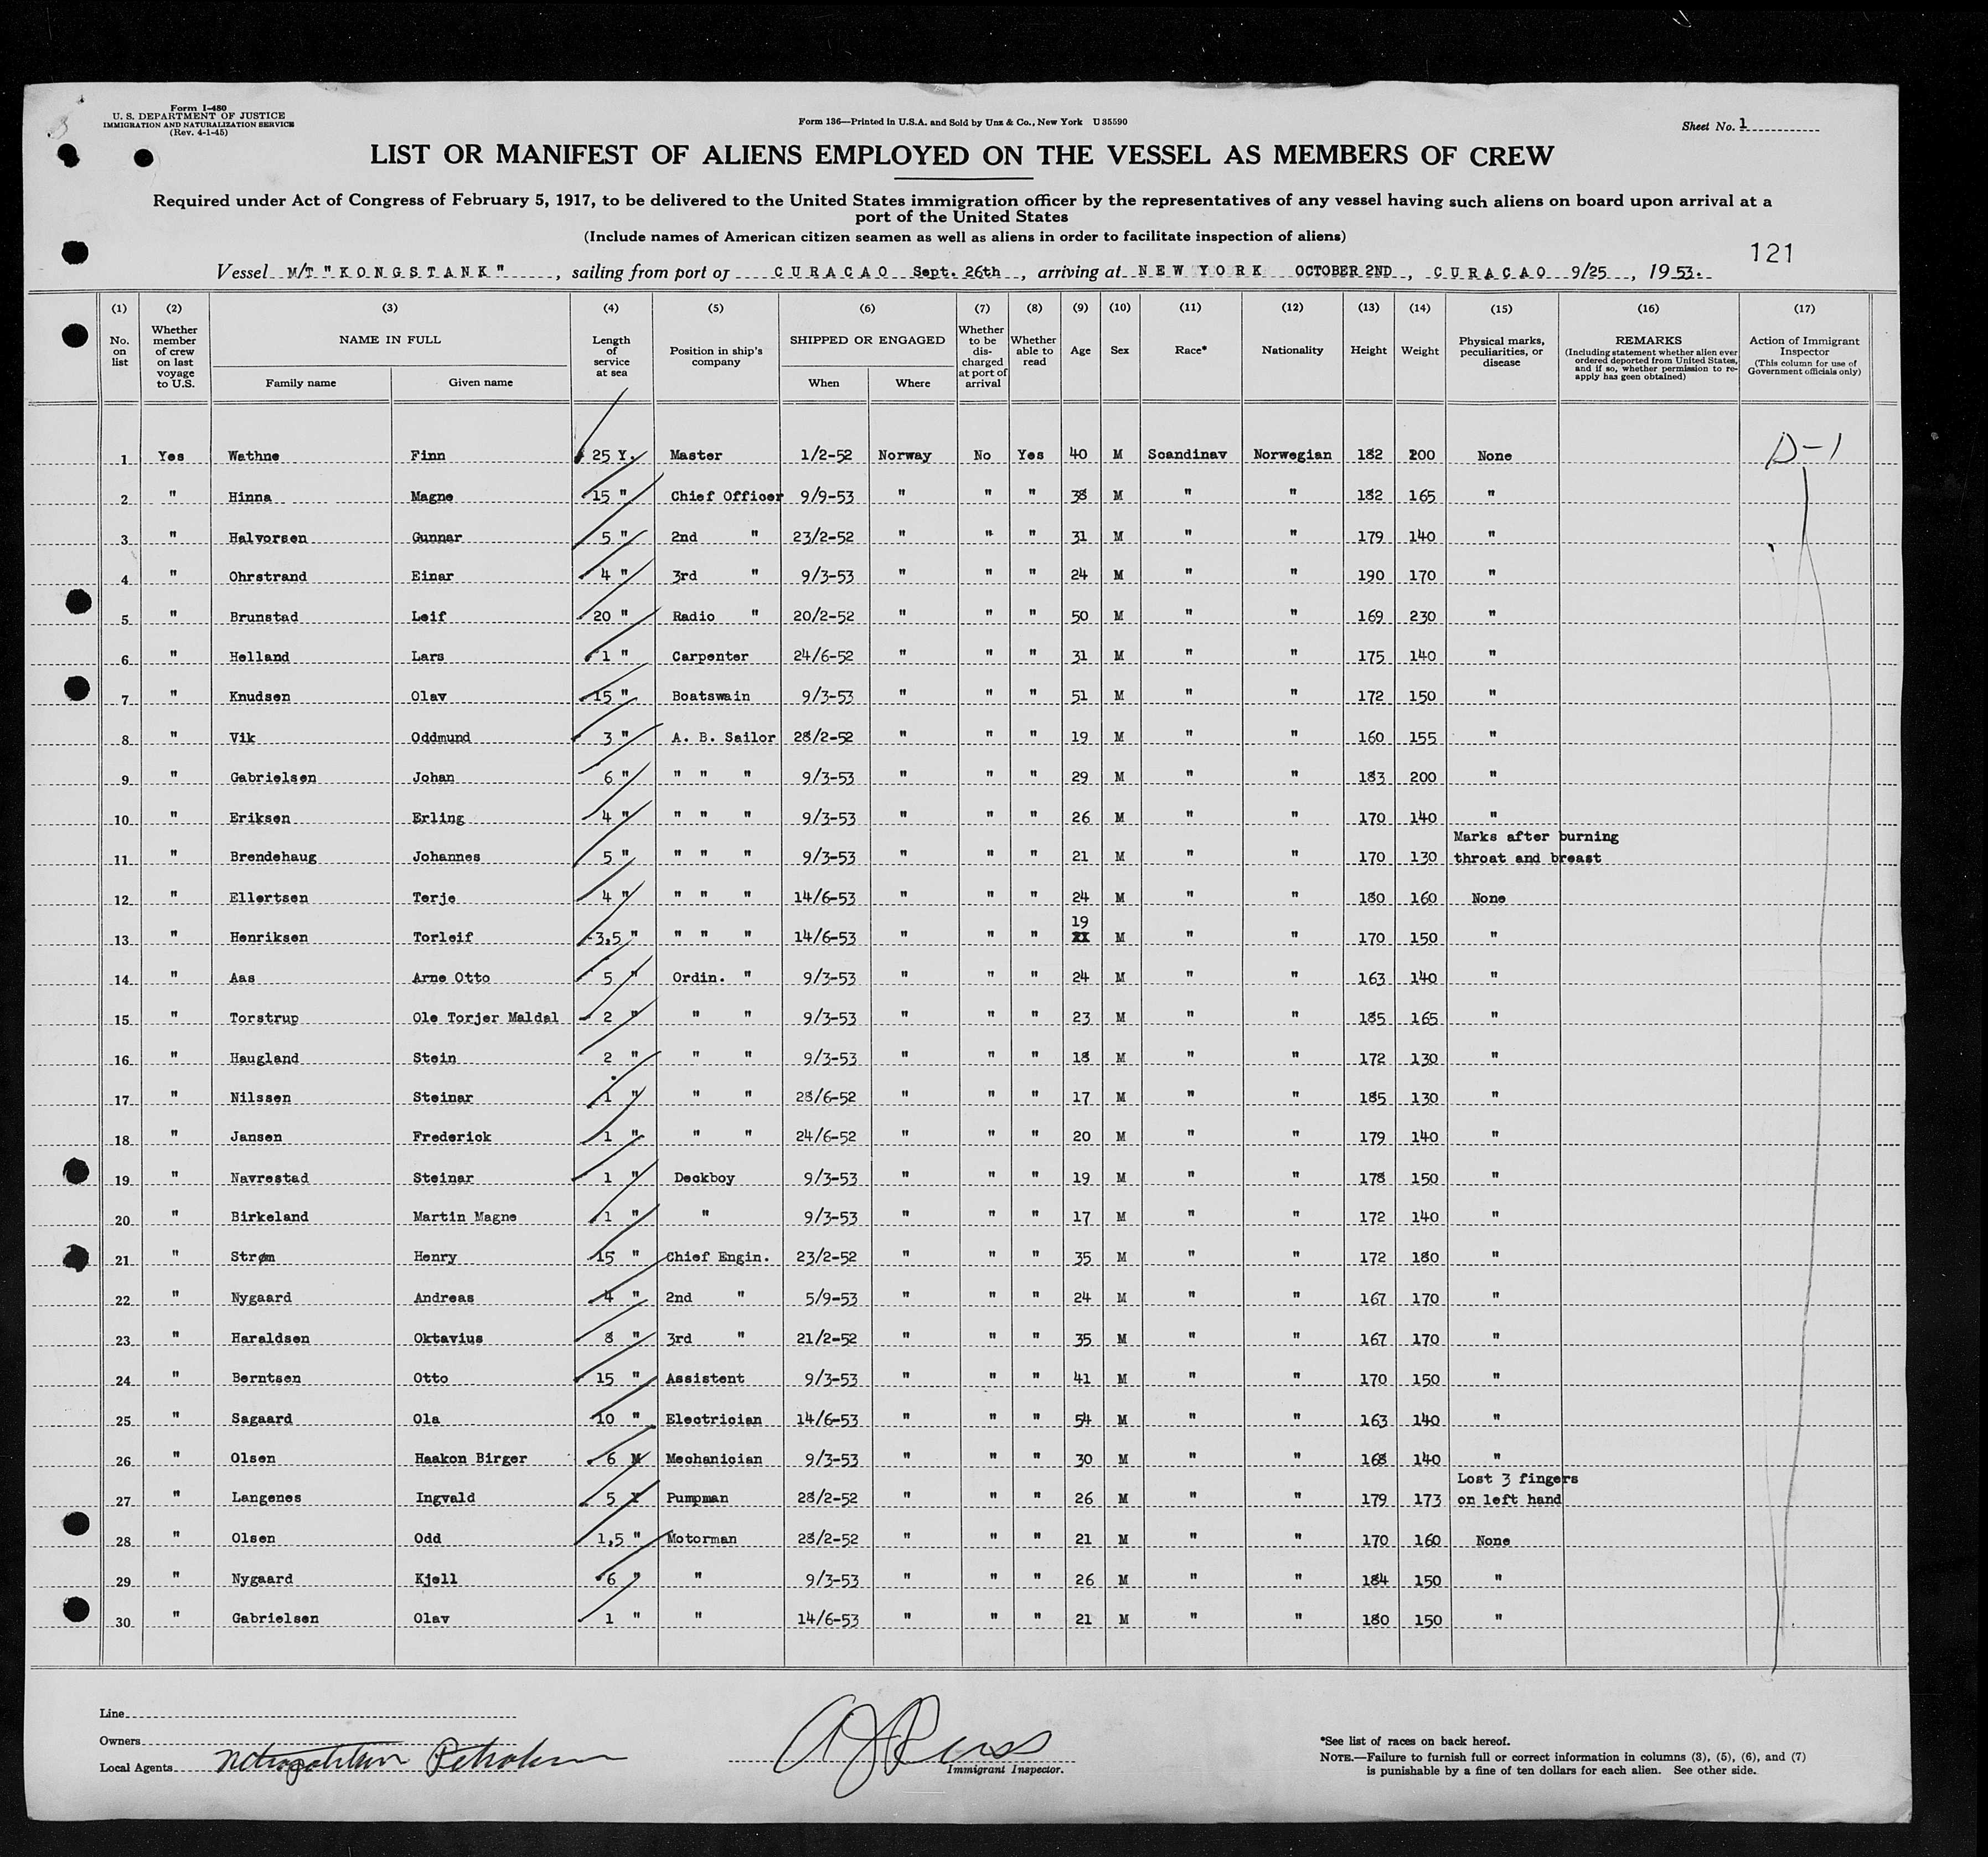 Form I-480
U. S. DEPARTMENT OF JUSTICE
IMMIGRATION AND NATURALIZATION SERVICE
(Rev. 4-1-45)
Form 136—Printed in U.S.A. and Sold by Unz & Co., New York U 35590
Sheet No. 1
LIST OR MANIFEST OF ALIENS EMPLOYED ON THE VESSEL AS MEMBERS OF CREW
Required under Act of Congress of February 5, 1917, to be delivered to the United States immigration officer by the representatives of any vessel having such aliens on board upon arrival at a
port of the United States
(Include names of American citizen seamen as well as aliens in order to facilitate inspection of aliens)
121
Vessel M/T "KONGSTANK", sailing from port of CURACAO Sept. 26th, arriving at NEW YORK OCTOBER 2ND, CURACAO 9/25, 1953.
(1) (2) (3) (4) (5) (6) (7) (8) (9) (10) (11) (12) (13) (14) (15) (16) (17)
No. on list
Whether member of crew on last voyage to U.S.
NAME IN FULL
Family name Given name
Length of service at sea
Position in ship's company
SHIPPED OR ENGAGED
When Where
Whether to be discharged at port of arrival
Whether able to read
Age
Sex
Race*
Nationality
Height
Weight
Physical marks, peculiarities, or disease
REMARKS
(Including statement whether alien ever ordered deported from United States, and if so, whether permission to re-apply has geen obtained)
Action of Immigrant Inspector
(This column for use of Government officials only)
1 Yes Wathne Finn 25 Y. Master 1/2-52 Norway No Yes 40 M Scandinav Norwegian 182 200 None D-1
2 " Hinna Magne 15 " Chief Officer 9/9-53 " " " 38 M " " 182 165 "
3 " Halvorsen Gunnar 5 " 2nd " 23/2-52 " " " 31 M " " 179 140 "
4 " Ohrstrand Einar 4 " 3rd " 9/3-53 " " " 24 M " " 190 170 "
5 " Brunstad Leif 20 " Radio " 20/2-52 " " " 50 M " " 169 230 "
6 " Helland Lars 1 " Carpenter 24/6-52 " " " 31 M " " 175 140 "
7 " Knudsen Olav 15 " Boatswain 9/3-53 " " " 51 M " " 172 150 "
8 " Vik Oddmund 3 " A. B. Sailor 28/2-52 " " " 19 M " " 160 155 "
9 " Gabrielsen Johan 6 " " " " 9/3-53 " " " 29 M " " 183 200 "
10 " Eriksen Erling 4 " " " " 9/3-53 " " " 26 M " " 170 140 "
11 " Brendehaug Johannes 5 " " " " 9/3-53 " " " 21 M " " 170 130 Marks after burning throat and breast
12 " Ellertsen Terje 4 " " " " 14/6-53 " " " 24 M " " 180 160 None
13 " Henriksen Torleif 3,5 " " " " 14/6-53 " " " 19 M " " 170 150 "
14 " Aas Arne Otto 5 " Ordin. " 9/3-53 " " " 24 M " " 163 140 "
15 " Torstrup Ole Torjer Maldal 2 " " " 9/3-53 " " " 23 M " " 185 165 "
16 " Haugland Stein 2 " " " 9/3-53 " " " 18 M " " 172 130 "
17 " Nilssen Steinar 1 " " " 28/6-52 " " " 17 M " " 185 130 "
18 " Jansen Frederick 1 " " " 24/6-52 " " " 20 M " " 179 140 "
19 " Navrestad Steinar 1 " Deckboy 9/3-53 " " " 19 M " " 178 150 "
20 " Birkeland Martin Magne 1 " " 9/3-53 " " " 17 M " " 172 140 "
21 " Strøm Henry 15 " Chief Engin. 23/2-52 " " " 35 M " " 172 180 "
22 " Nygaard Andreas 4 " 2nd " 5/9-53 " " " 24 M " " 167 170 "
23 " Haraldsen Oktavius 8 " 3rd " 21/2-52 " " " 35 M " " 167 170 "
24 " Berntsen Otto 15 " Assistent 9/3-53 " " " 41 M " " 170 150 "
25 " Sagaard Ola 10 " Electrician 14/6-53 " " " 54 M " " 163 140 "
26 " Olsen Haakon Birger 6 M Mechanician 9/3-53 " " " 30 M " " 168 140 "
27 " Langenes Ingvald 5 Y Pumpman 28/2-52 " " " 26 M " " 179 173 Lost 3 fingers on left hand
28 " Olsen Odd 1,5 " Motorman 28/2-52 " " " 21 M " " 170 160 None
29 " Nygaard Kjell 6 " " 9/3-53 " " " 26 M " " 184 150 "
30 " Gabrielsen Olav 1 " " 14/6-53 " " " 21 M " " 180 150 "
Line
Owners
Local Agents Metropolitan Petroleum
Immigrant Inspector.
*See list of races on back hereof.
NOTE.—Failure to furnish full or correct information in columns (3), (5), (6), and (7)
is punishable by a fine of ten dollars for each alien. See other side.